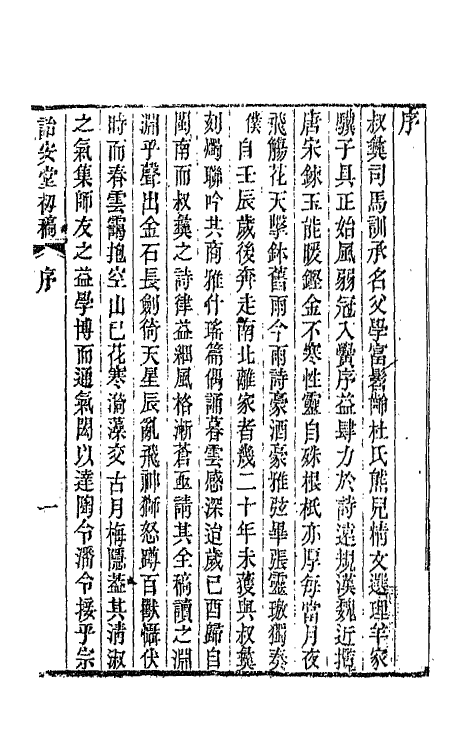 序
叔彝司馬訓承名父學富髫齡杜氏熊兒精文選理羊家
驥子具正始風弱冠入黌序益肆力於詩遠規漢魏近撫
唐宋錬玉能暖鏗金不寒性靈自殊根柢亦厚每當月夜
飛觴花天擘鉢舊雨今雨詩豪酒豪雅弦畢張靈璈獨奏
僕自壬辰歲後奔走南北離家者幾二十年未獲與叔彝
刻燭聯吟共商雅什瑤篇偶誦暮雲感深迨歲己酉歸自
閩南而叔彝之詩律益細風格漸蒼亟請其全稿讀之淵
淵乎聲出金石長劍倚天星辰亂飛神獅怒蹲百獸懾伏
時而春雲靄抱空山已花寒漪藻交古月梅隱蓋其清淑
之氣集師友之益學博而通氣閎以達陶令潘令接乎宗
詒安堂初稿 序 一